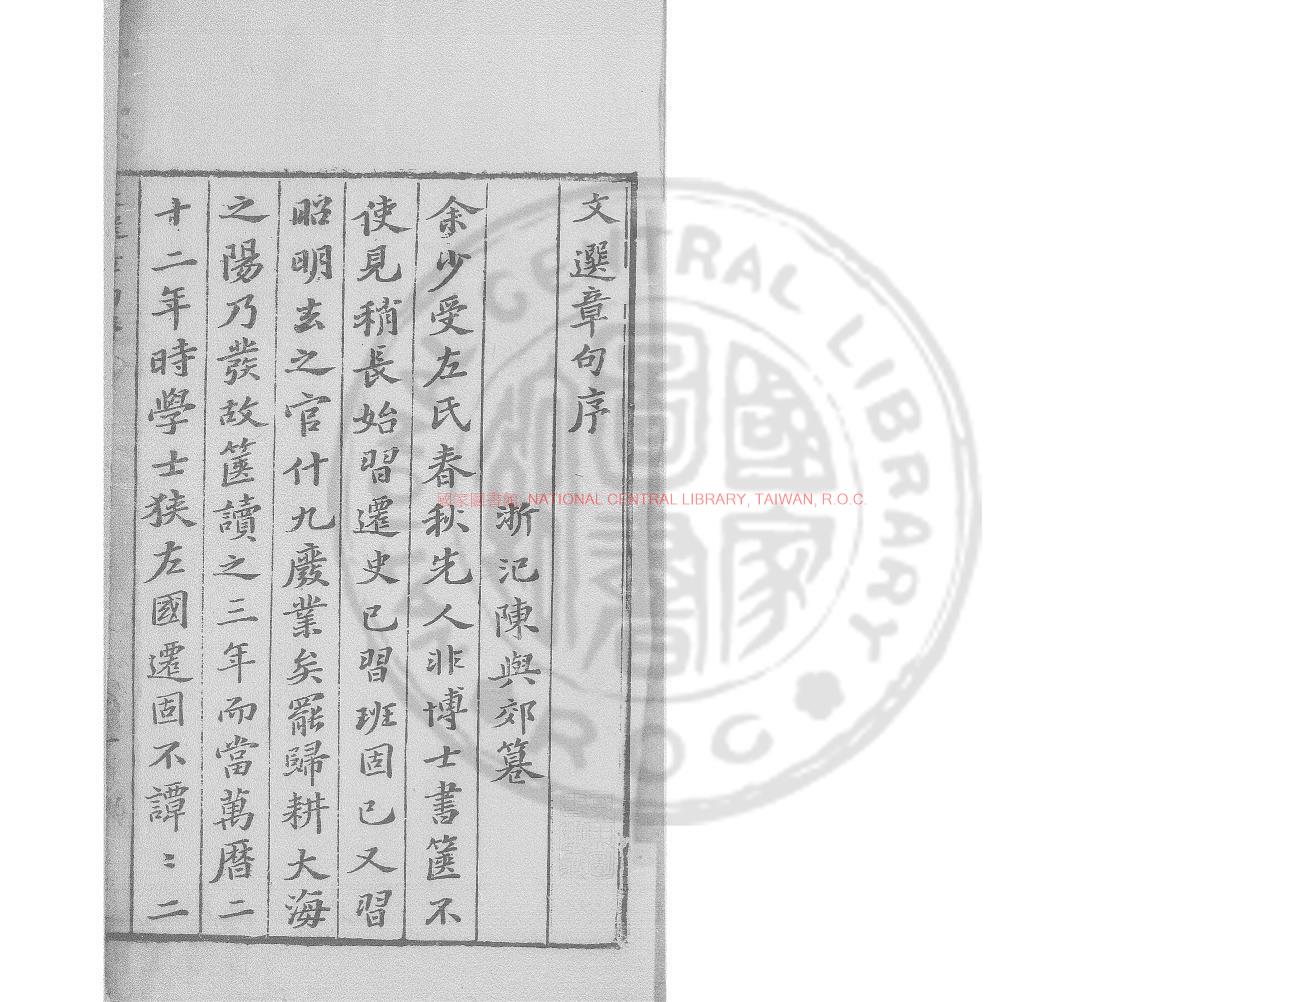 文選章句序
浙汜陳與郊篹
余少受左氏春秋先人非博士書篋不
使見稍長始習遷史已習班固已又習
昭明去之官什九廢業矣罷歸耕大海
之陽乃發故篋讀之三年而當萬曆二
十二年時學士狹左國遷固不譚〻二
國家圖書館 NATIONAL CENTRAL LIBRARY, TAIWAN, R.O.C.
CENTRAL LIBRARY
ROC